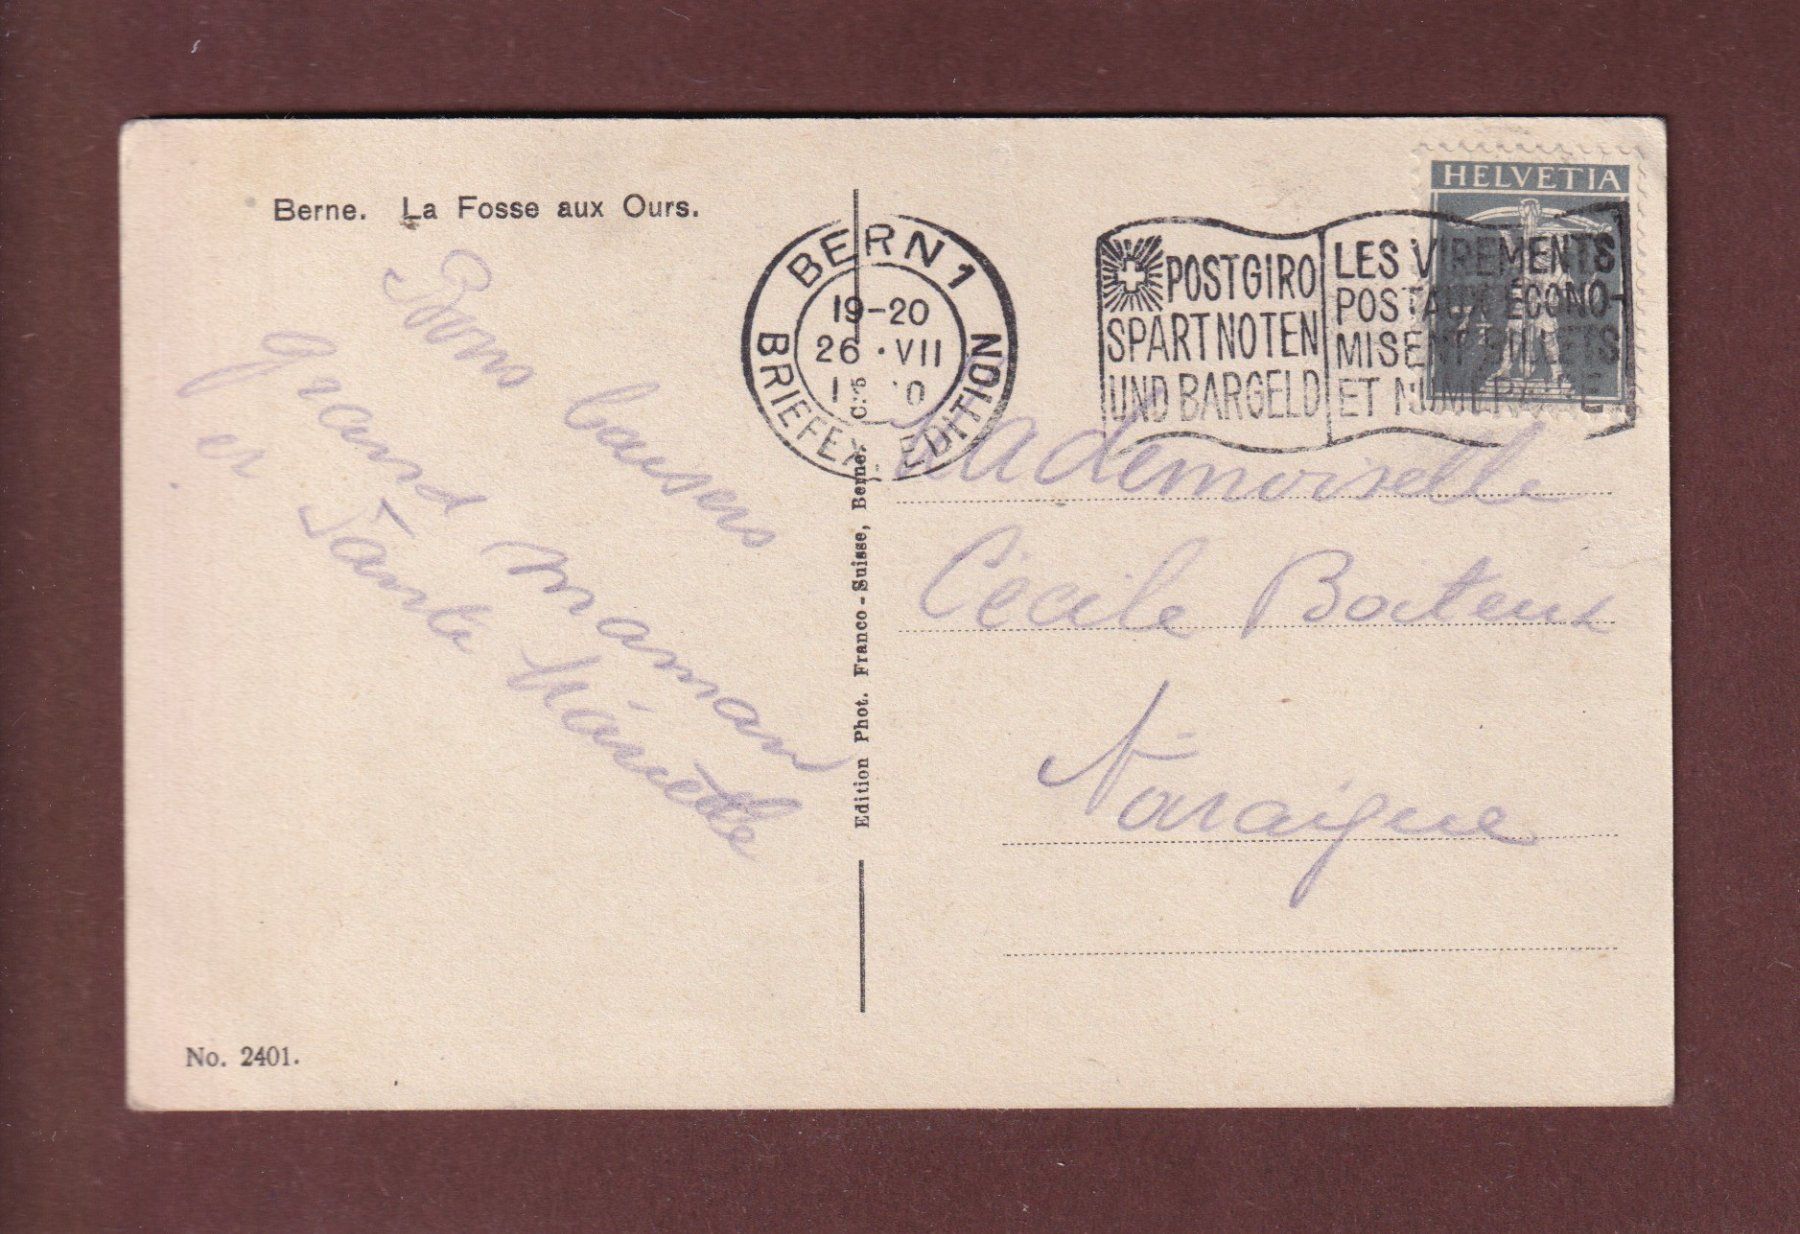 Berne. La Fosse aux Ours.
Bons baisers
grand maman
et Tante Mariette
No. 2401.
Edition Phot. Franco-Suisse, Berne.
BERN 1
19-20
26 · VII
BRIEFEXPEDITION
POSTGIRO
SPART NOTEN
UND BARGELD
LES VIREMENTS
POSTAUX ÉCONO-
MISENT BILLETS
ET NUMÉRAIRE
HELVETIA
Mademoiselle
Cécile Boiteux
Noiraigue